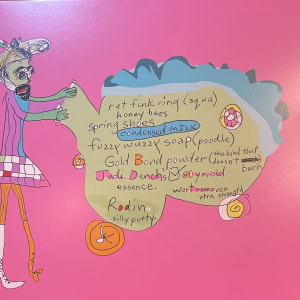 rat fink ring (aqua)
honey bees
spring shoes
condensed MILK
fuzzy wuzzy soap (poodle)
Gold Bond powder (the kind that
doesn't burn
Judi Dench's
essence.
wart remover
xtra strength
Rodin
silly putty.